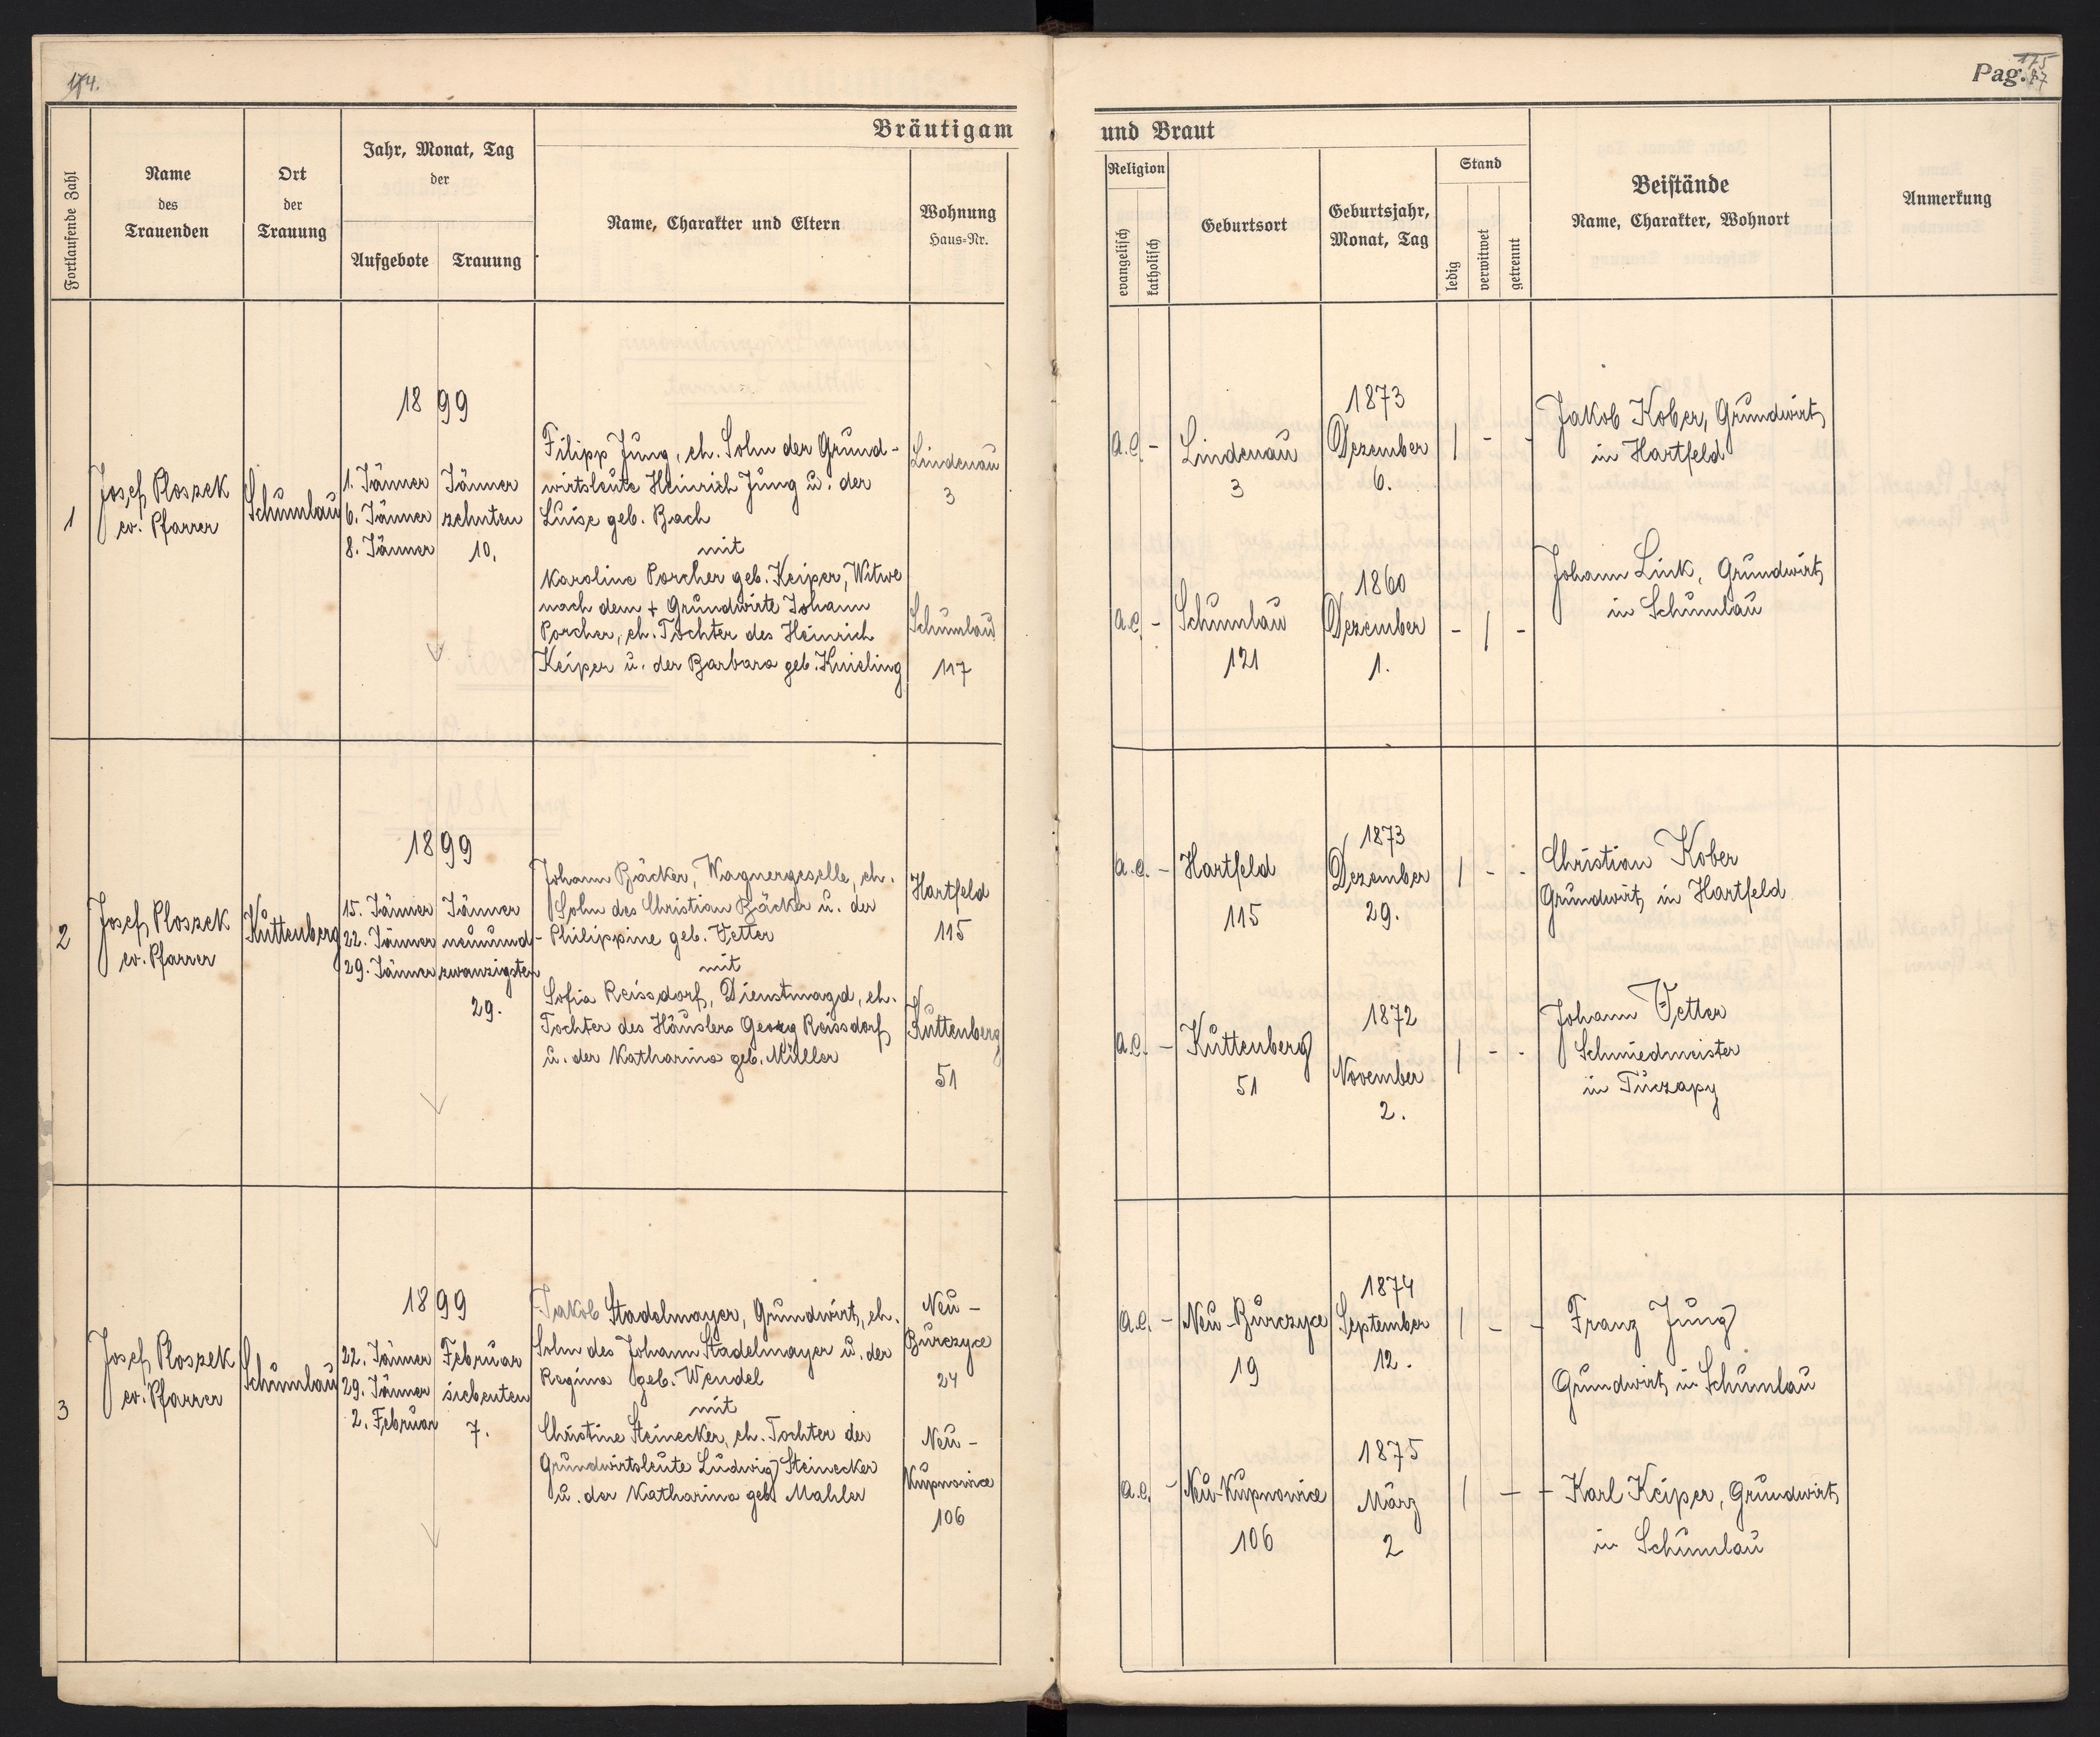 174.
Pag. 175
87
Bräutigam
und Braut
Fortlaufende Zahl
Name
des
Trauenden
Ort
der
Trauung
Jahr, Monat, Tag
der
Aufgebote
Trauung
Name, Charakter und Eltern
Wohnung
Haus=Nr.
Religion
evangelisch
katholisch
Geburtsort
Geburtsjahr,
Monat, Tag
Stand
ledig
verwitwet
getrennt
Beistände
Name, Charakter, Wohnort
Anmerkung
1
Josef Ploszek
ev. Pfarrer
Schumlau
1899
1. Jänner
6. Jänner
8. Jänner
Jänner
zehnten
10.
Filipp Jung, eh. Sohn der Grund-
wirtsleute Heinrich Jung u. der
Luise geb. Bach
mit
Karoline Porcher geb. Keiper, Witwe
nach dem + Grundwirte Johann
Porcher, eh. Tochter des Heinrich
Keiper u. der Barbara geb. Knisling
Lindenau
3
Schumlau
117
a.c. -
Lindenau
3
1873
Dezember
6.
/ - -
Jakob Kober, Grundwirt
in Hartfeld
a.c. -
Schumlau
121
1860
Dezember
1.
- / -
Johann Link, Grundwirt
in Schumlau
2
Josef Ploszek
ev. Pfarrer
Kuttenberg
1899
15. Jänner
22. Jänner
29. Jänner
Jänner
neunund-
zwanzigsten
29.
Johann Bäcker, Wagnergeselle, eh.
Sohn des Christian Bäcker u. der
Philippine geb. Vetter
mit
Sofia Reissdorf, Dienstmagd, eh.
Tochter des Häuslers Georg Reissdorf
u. der Katharina geb. Müller
Hartfeld
115
Kuttenberg
51
a.c. -
Hartfeld
115
1873
Dezember
29.
/ - -
Christian Kober
Grundwirt in Hartfeld
a.c. -
Kuttenberg
51
1872
November
2.
/ - -
Johann Vetter
Schmiedmeister
in Tuczapy
3
Josef Ploszek
ev. Pfarrer
Schumlau
1899
22. Jänner
29. Jänner
2. Februar
Februar
siebenten
7.
Jakob Stadelmayer, Grundwirt, eh.
Sohn des Johann Stadelmayer u. der
Regina geb. Wendel
mit
Christine Steinecker, eh. Tochter der
Grundwirtsleute Ludwig Steinecker
u. der Katharina geb. Mahler
Neu -
Burczyce
24
Neu -
Kupnowice
106
a.c. -
Neu-Burczyce
19
1874
September
12.
/ - -
Franz Jung
Grundwirt in Schumlau
a.c. -
Neu-Kupnowice
106
1875
März
2
/ - -
Karl Keiper, Grundwirt
in Schumlau